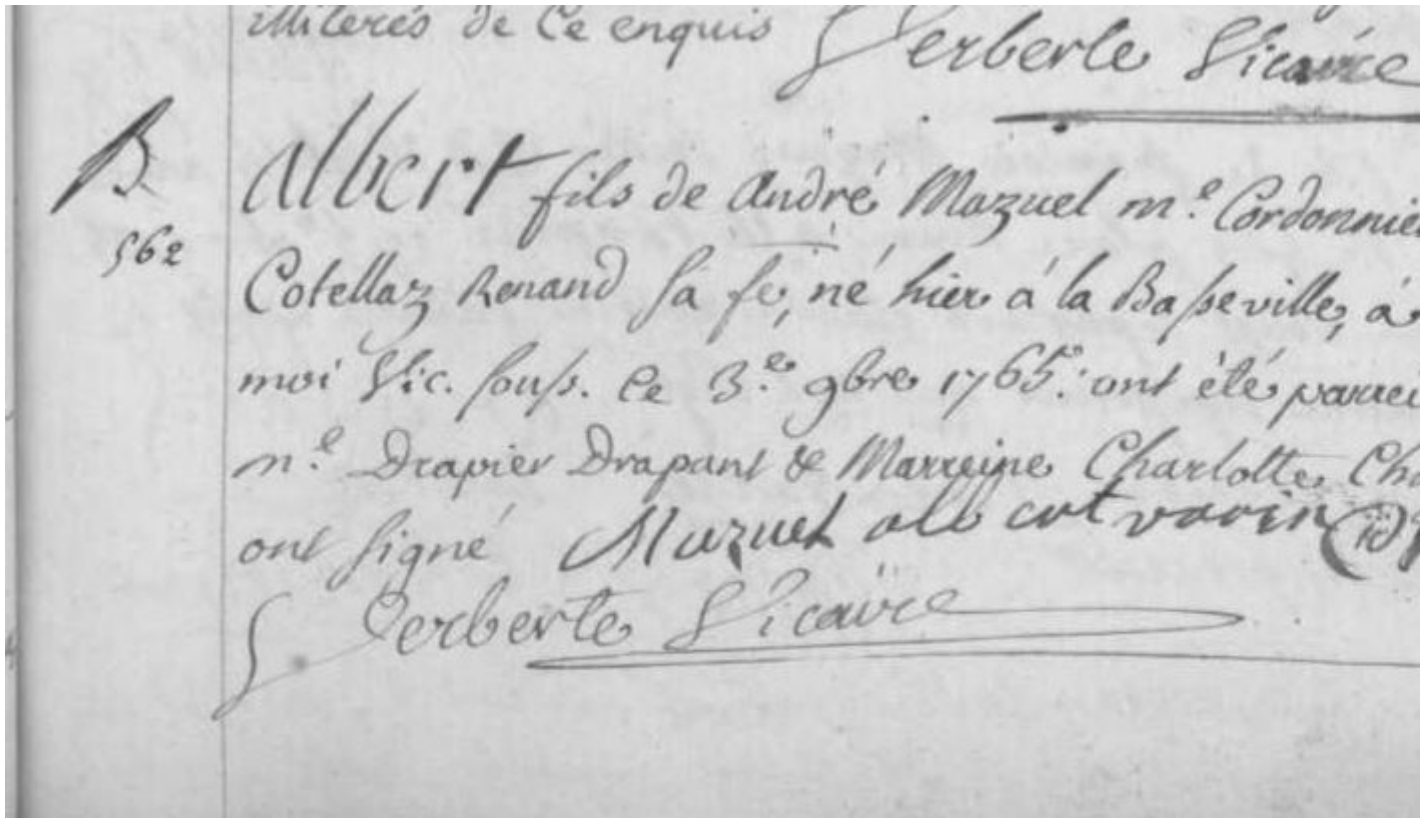 illiterés de Ce enquis Gerberte Vicaire
B Albert fils de André Mazuel m.e Cordonnie
562
Cotellaz Renand sa fe, né hier à la Basseville, à
moi Vic. souss. Ce 3.e 9bre 1765. ont été parrei
m.e Drapier Drapant & Marreine Charlotte Ch
ont signé Mazuel albert varin
Gerberte Vicaire